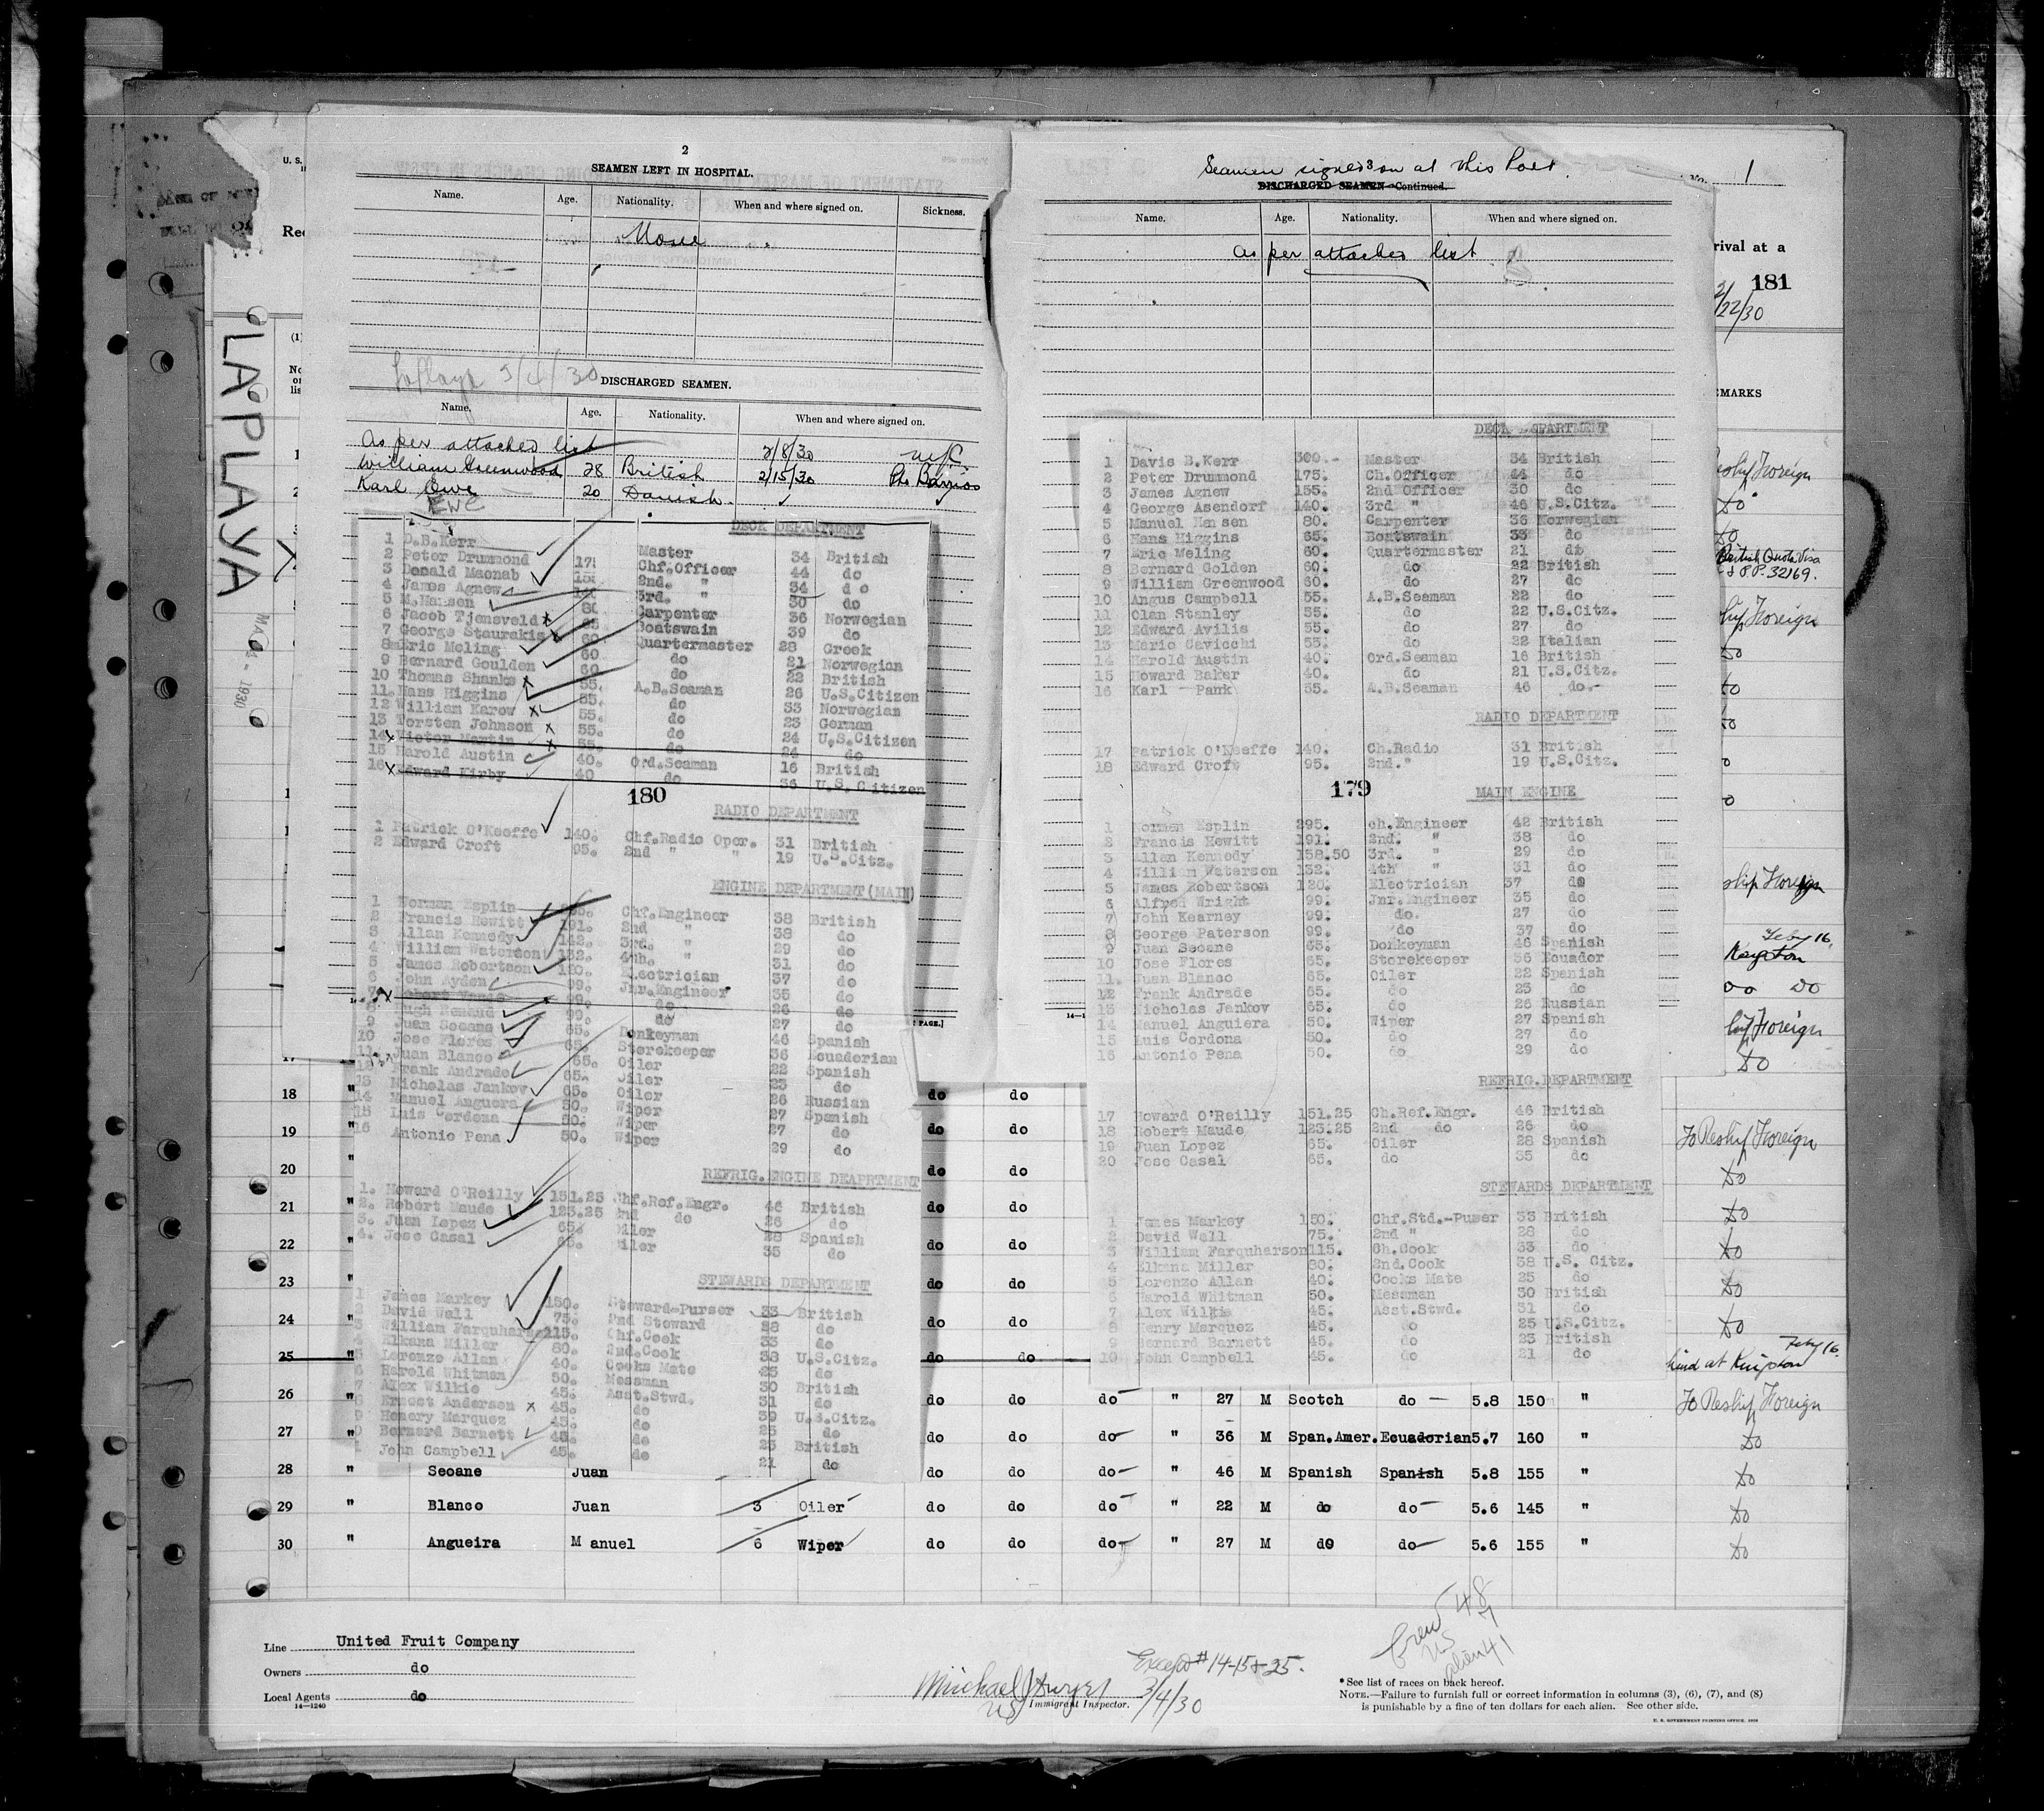 2
SEAMEN LEFT IN HOSPITAL.
Name. Age. Nationality. When and where signed on. Sickness.
None
Laplaya 3/4/30 DISCHARGED SEAMEN.
Name. Age. Nationality. When and where signed on.
As per attached list 2/8/30
William Greenwood 28 British 2/15/30 Pto Barrios
Karl Owe 20 Danish
EWE
DECK DEPARTMENT
1 D.B.Kerr Master 34 British
2 Peter Drummond 175 Chf.Officer 44 do
3 Donald Macnab 155 2nd. " 34 do
4 James Agnew 140 3rd. " 30 do
5 M.Hansen 80 Carpenter 36 Norwegian
6 Jacob Tjensveld 65 Boatswain 39 do
7 George Staurakis 60 Quartermaster 28 Greek
8 Eric Meling 60 do 21 Norwegian
9 Bernard Goulden 60 do 22 British
10 Thomas Shanks 55. A.B.Seaman 26 U.S.Citizen
11. Hans Higgins 55. do 33 Norwegian
12 William Karow 55. do 23 German
13 Torsten Johnson 55. do 24 U.S.Citizen
14 Victor Martin 55. do 24 do
15 Harold Austin 40. Ord.Seaman 16 British
16 Edward Kirby 40 do 36 U.S.Citizen
180
RADIO DEPARTMENT
1 Patrick O'Keeffe 140. Chf.Radio Oper. 31 British
2 Edward Croft 95. 2nd " " 19 U.S.Citz.
ENGINE DEPARTMENT(MAIN)
1 Norman Esplin Chf.Engineer 38 British
2 Francis Hewitt 191. 2nd " 38 do
3 Allan Kennedy 142. 3rd. " 29 do
4 William Waterson 132. 4th. " 31 do
5 James Robertson 120. Electrician 37 do
6 John Ayden 99. Jnr.Engineer 35 do
7 99. do 26 do
8 Hugh Renaud 99. do 27 do
9 Juan Seoane 65. Donkeyman 46 Spanish
10 Jose Flores 65. Storekeeper 36 Ecuadorian
11 Juan Blanco 65. Oiler 22 Spanish
12 Frank Andrade 65. Oiler 23 do
13 Nicholas Jankov 65. Oiler 26 Russian
14 Manuel Anguera 50. Wiper 27 Spanish
15 Luis Cordona 50. Wiper 27 do
16 Antonio Pena 50. Wiper 29 do
REFRIG.ENGINE DEAPRTMENT
1. Howard O'Reilly 151.25 Chf.Ref.Engr. 46 British
2. Robert Maude 123.25 2nd do 26 do
3. Juan Lopez 65. Oiler 28 Spanish
4. Jose Casal 65. Oiler 35 do
STEWARDS DEPARTMENT
1 James Markey 150. Steward-Purser 33 British
2 David Wall 75. 2nd Steward 28 do
3 William Farquharson 115. Chf.Cook 33 do
4 Elkana Miller 80. 2nd.Cook 38 U.S.Citz.
5 Lorenzo Allan 40. Cooks Mate 25 do
6 Harold Whitman 50. Messman 30 British
7 Alex Wilkie 45. Asst.Stwd. 31 do
8 Ernest Anderson 45. do 39 U.S.Citz.
9 Henery Marquez 45. do 25 do
0 Bernard Barnett 45. do 23 British
1 John Campbell 45. do 21 do
LA PLAYA
MAR 4 - 1930
Seamen signed on at this Port.
3
DISCHARGED SEAMEN—Continued.
Name. Age. Nationality. When and where signed on.
as per attached list
DECK DEPARTMENT
1 Davis B.Kerr 300.- Master 34 British
2 Peter Drummond 175. Ch.Officer 44 do
3 James Agnew 155. 2nd Officer 30 do
4 George Asendorf 140. 3rd. " 46 U.S.Citz.
5 Manuel Hansen 80. Carpenter 36 Norwegian
6 Hans Higgins 65. Boatswain 33 do
7 Eric Meling 60. Quartermaster 21 do
8 Bernard Golden 60. do 22 British
9 William Greenwood 60. do 27 do
10 Angus Campbell 55. A.B.Seaman 22 do
11 Clan Stanley 55. do 22 U.S.Citz.
12 Edward Avilis 55. do 27 do
13 Mario Cavicchi 55. do 22 Italian
14 Harold Austin 40. Ord.Seaman 16 British
15 Howard Baker 40. do 21 U.S.Citz.
16 Karl Pank 55. A.B.Seaman 46 do.-
RADIO DEPARTMENT
17 Patrick O'Keeffe 140. Ch.Radio 31 British
18 Edward Croft 95. 2nd." 19 U.S.Citz.
179
MAIN ENGINE
1 Norman Esplin 295. ch.Engineer 42 British
2 Francis Hewitt 191. 2nd. " 38 do
3 Allan Kennedy 158.50 3rd. " 29 do
4 William Waterson 132. 4th " 31 do
5 James Robertson 120. Electrician 37 do
6 Alfred Wright 99. Jnr.Engineer 35 do
7 John Kearney 99. do. 27 do
8 George Paterson 99. do 37 do
9 Juan Seoane 65. Donkeyman 46 Spanish
10 Jose Flores 65. Storekeeper 36 Ecuador
11. Juan Blanco 65. Oiler 22 Spanish
12 Frank Andrade 65. do 23 do
13 Nicholas Jankov 65. do 26 Russian
14 Manuel Anguiera 50. Wiper 27 Spanish
15 Luis Cordona 50. do 27 do
16 Antonio Pena 50. do 29 do
REFRIG.DEPARTMENT
17 Howard O'Reilly 151.25 Ch.Ref.Engr. 46 British
18 Robert Maude 123.25 2nd do 26 do
19 Juan Lopez 65. Oiler 28 Spanish
20 Jose Casal 65. do 35 do
STEWARDS DEPARTMENT
1 James Markey 150. Chf.Std.-Purser 33 British
2 David Wall 75. 2nd " 28 do
3 William Farquharson 115. Ch.Cook 33 do
4 Elkana Miller 80. 2nd.Cook 38 U.S. Citz.
5 Lorenzo Allan 40. Cooks Mate 25 do
6 Harold Whitman 50. Messman 30 British
7 Alex Wilkie 45. Asst.Stwd. 31 do
8 Henry Marquez 45. do 25 U.S.Citz.
9 Bernard Barnett 45. do 23 British
10 John Campbell 45. do 21 do
1
rival at a
181
2/22/30
MARKS
Reship Foreign
Do
Do
British Quota Visa
P.P. 32169.
ship Foreign
Do
Do
Do
ship Foreign
Feby 16,
Kingston
Do Do
Foreign
Do
18 " do do
19 " do do To Reship Foreign
20 " do do Do
21 " do do Do
22 " do do Do
23 " do do Do
24 " do do Do
25 " do do hind at Kingston Feby 16.
26 do do do " 27 M Scotch do 5.8 150 " To Reship Foreign
27 do do do " 36 M Span.Amer. Ecuadorian 5.7 160 " Do
28 " Seoane Juan do do do " 46 M Spanish Spanish 5.8 155 " Do
29 " Blanco Juan 3 Oiler do do do " 22 M do do 5.6 145 " Do
30 " Angueira Manuel 6 Wiper do do do " 27 M do do 5.6 155 " Do
Line United Fruit Company
Owners do
Local Agents do
14—1240
Except # 14-15+25.
3/4/30
Immigrant Inspector.
Crew 48
US 7
alien 41
*See list of races on back hereof.
NOTE.—Failure to furnish full or correct information in columns (3), (6), (7), and (8)
is punishable by a fine of ten dollars for each alien. See other side.
U. S. GOVERNMENT PRINTING OFFICE